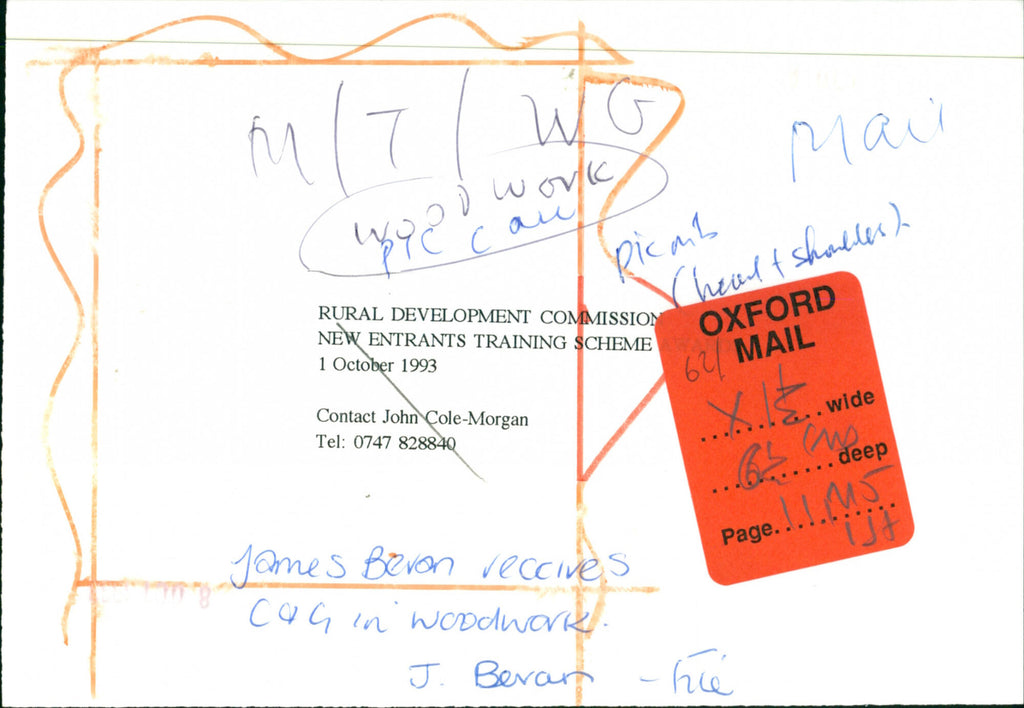 M/T/WG
Mail
WOODWORK
PIC
(head + shoulders)
RURAL DEVELOPMENT COMMISSION
NEW ENTRANTS TRAINING SCHEME
1 October 1993
Contact John Cole-Morgan
Tel: 0747 828840
OXFORD
MAIL
62/
X 1½ wide
deep
Page
1st
James Bevan receives
C&G in woodwork.
J. Bevan -